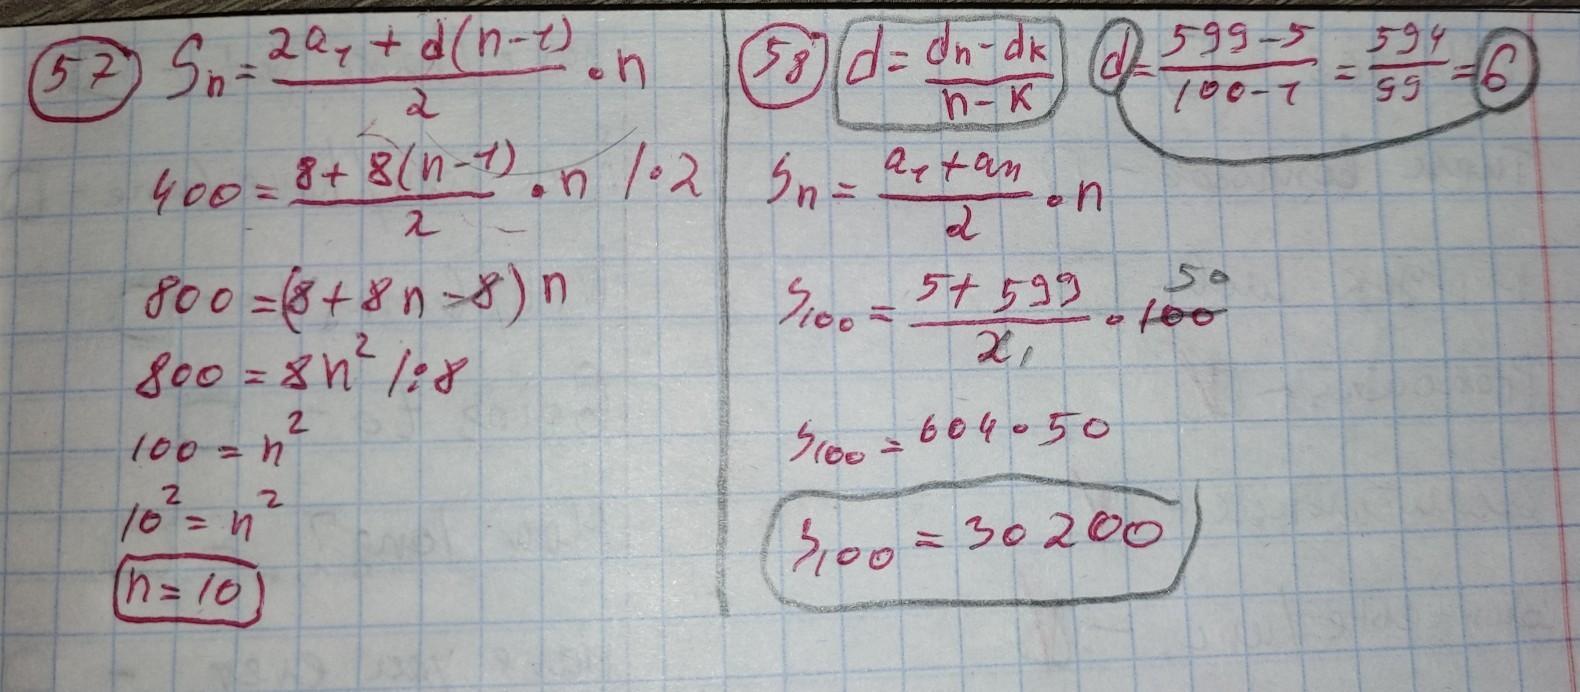 57 Sn = (2a₁ + d(n-1))/2 · n
400 = (8 + 8(n-1))/2 · n /·2
800 = (8 + 8n - 8) n
800 = 8n² /:8
100 = n²
10² = n²
n = 10
58 d = (dn - dk)/(n - k) d = (599 - 5)/(100 - 1) = 594/99 = 6
Sn = (a₁ + an)/2 · n
S₁₀₀ = (5 + 599)/2₁ · 100 50
S₁₀₀ = 604 · 50
S₁₀₀ = 30 200